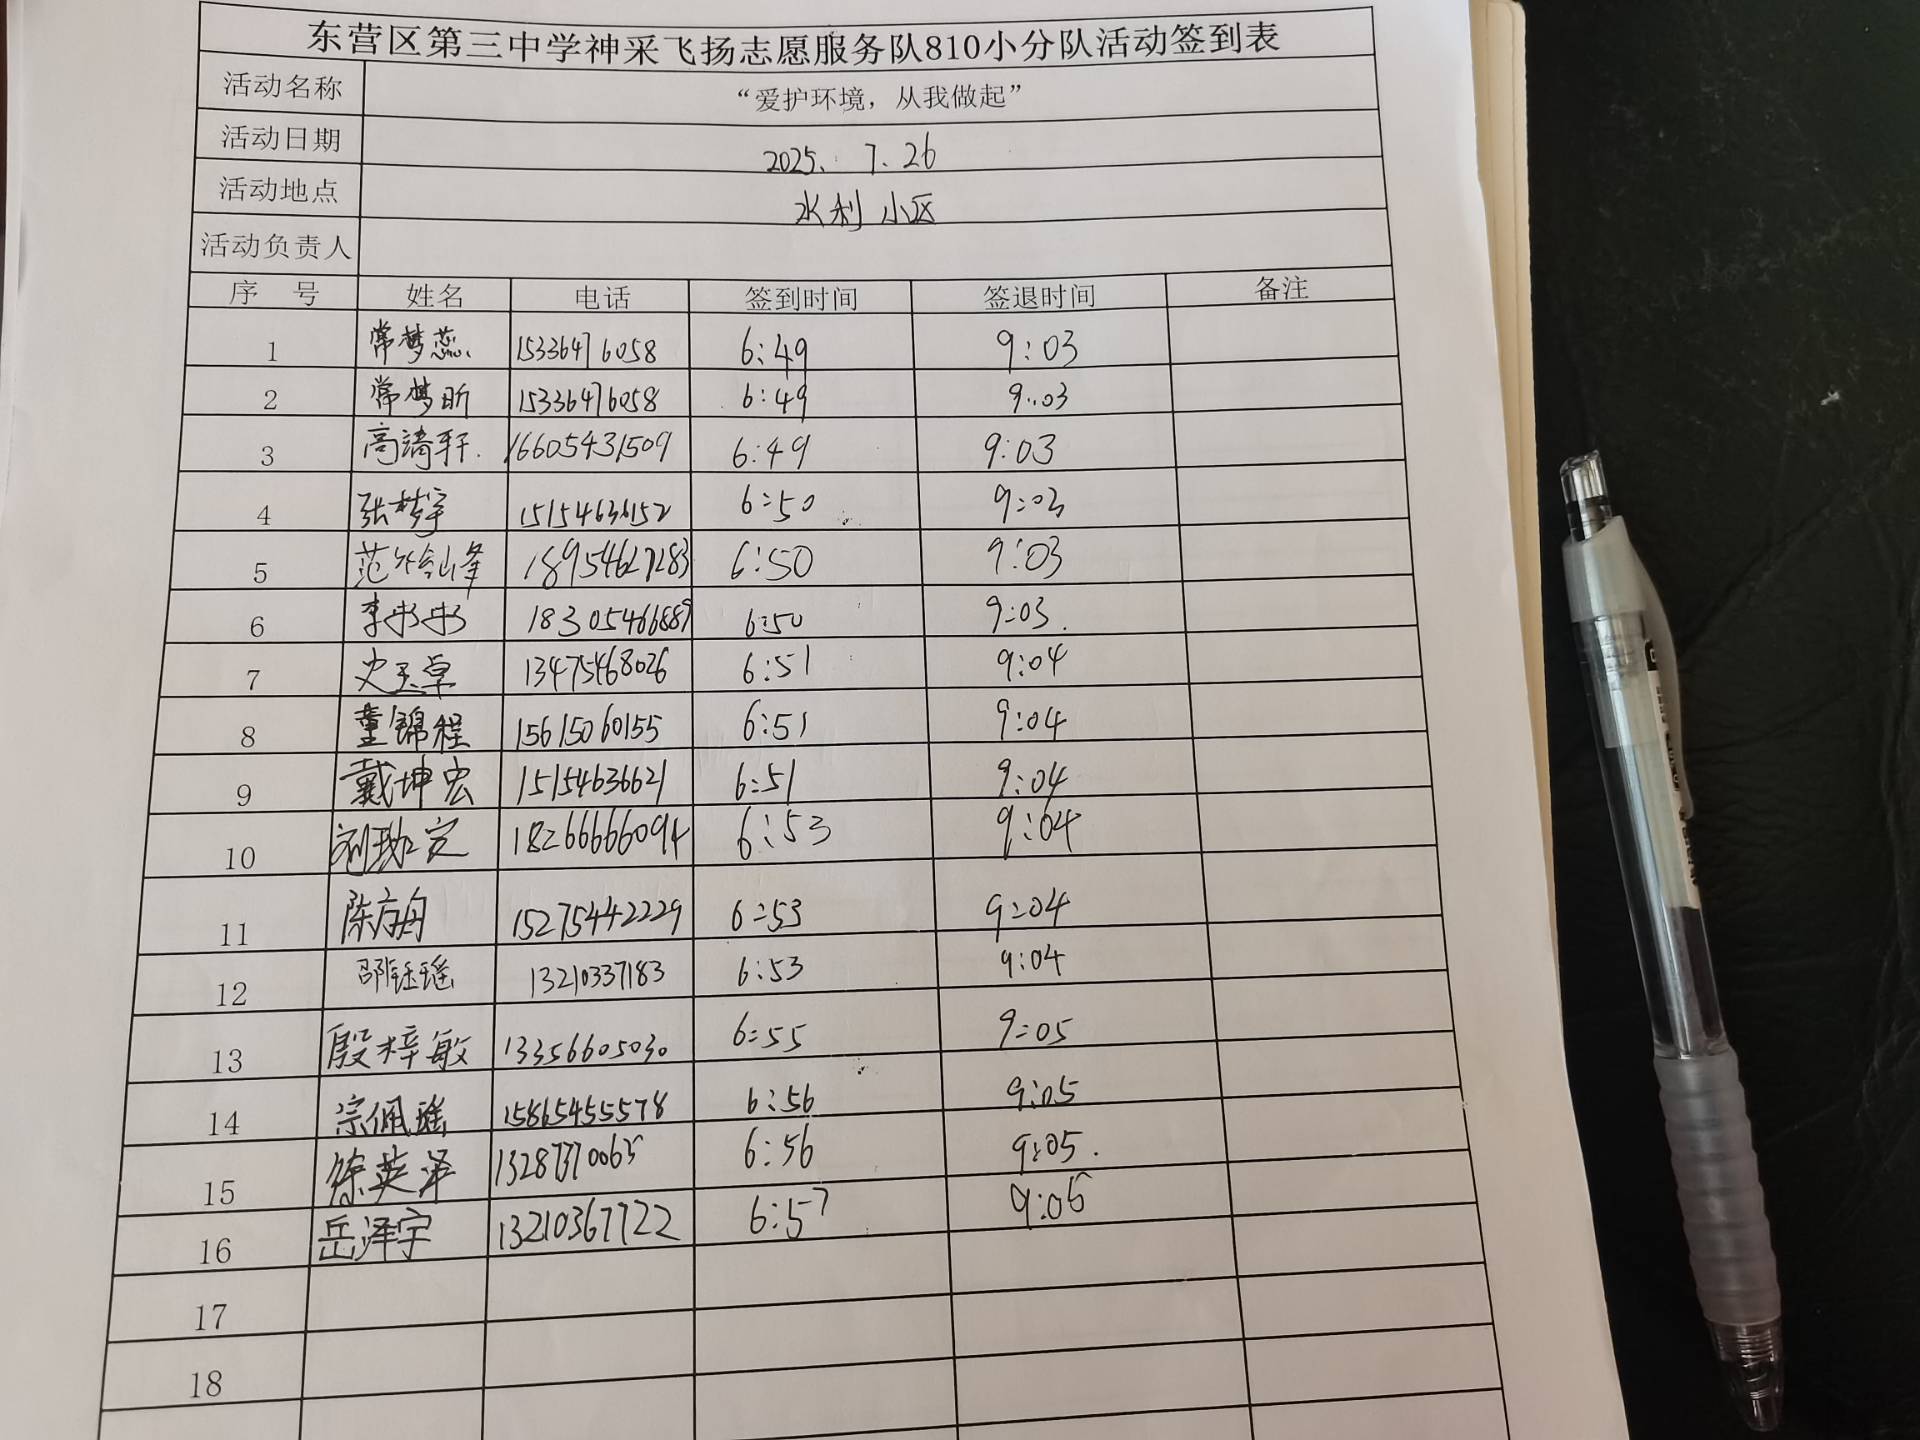 东营区第三中学神采飞扬志愿服务队810小分队活动签到表
活动名称 “爱护环境，从我做起”
活动日期 2025. 7.26
活动地点 水利小区
活动负责人
序 号 姓名 电话 签到时间 签退时间 备注
1 常梦蕊 15336476058 6:49 9:03
2 常梦昕 15336476058 6:49 9:03
3 高靖轩 16605431509 6:49 9:03
4 张梦宇 15154636152 6:50 9:03
5 范 峰 18954627283 6:50 9:03
6 李书书 18305466889 6:50 9:03
7 史玉卓 13475468026 6:51 9:04
8 董锦程 15615060155 6:51 9:04
9 戴坤宏 15154636621 6:51 9:04
10 刘 18266666094 6:53 9:04
11 陈方舟 15275442229 6:53 9:04
12 邵钰瑶 13210337183 6:53 9:04
13 殷梓敏 13356605030 6:55 9:05
14 宗佩瑶 15865455578 6:56 9:05
15 徐英泽 13287370065 6:56 9:05
16 岳泽宇 13210367722 6:57 9:06
17
18